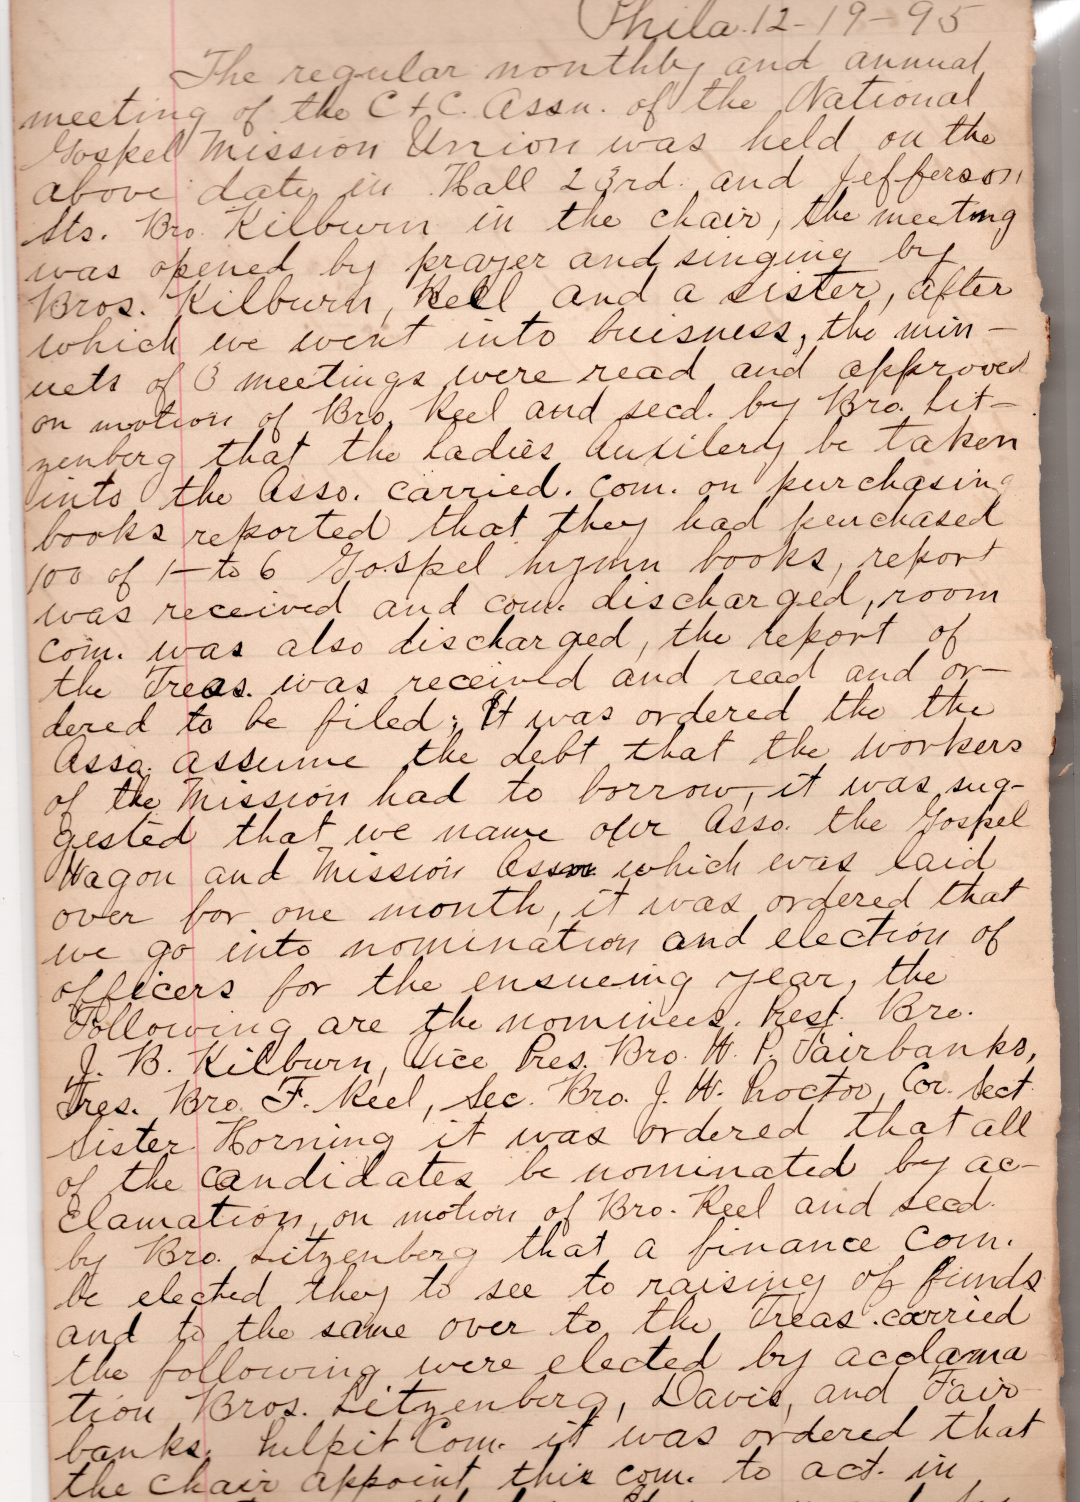 Phila. 12-19-95
The regular monthly and annual
meeting of the C+C. Assn. of the National
Gospel Mission Union was held on the
above date in Hall 23rd. and Jefferson
Sts. Bro. Kilburn in the chair, the meeting
was opened by prayer and singing by
Bros. Kilburn, Keel and a sister, after
which we went into buisness, the min-
uets of 3 meetings were read and approved
on motion of Bro. Keel and secd. by Bro. Lit-
zenberg that the Ladies Auxilery be taken
into the Asso. carried. Com. on purchasing
books reported that they had purchased
100 of 1-to 6 Gospel hymn books, report
was received and com. discharged, room
com. was also discharged, the report of
the Treas. was received and read and or-
dered to be filed; It was ordered tho the
Asso. assume the debt that the workers
of the Mission had to borrow, it was sug-
gested that we name our Asso. the Gospel
Wagon and Mission Assn which was laid
over for one month, it was ordered that
we go into nomination and election of
officers for the ensueing year, the
Following are the nominees. Prest. Bro.
J. B. Kilburn, Vice Pres. Bro. W. P. Fairbanks,
Tres. Bro. F. Keel, Sec. Bro. J. W. Proctor, Cor. Sect.
Sister Horning it was ordered that all
of the candidates be nominated by ac-
clamation, on motion of Bro. Keel and secd.
by Bro. Litzenberg that a finance Com.
be elected they to see to raising of funds
and to the same over to the Treas. carried
the following were elected by acclama
tion Bros. Litzenberg, Davis, and Fair-
banks. Pulpit Com. it was ordered that
the chair appoint this com. to act. in